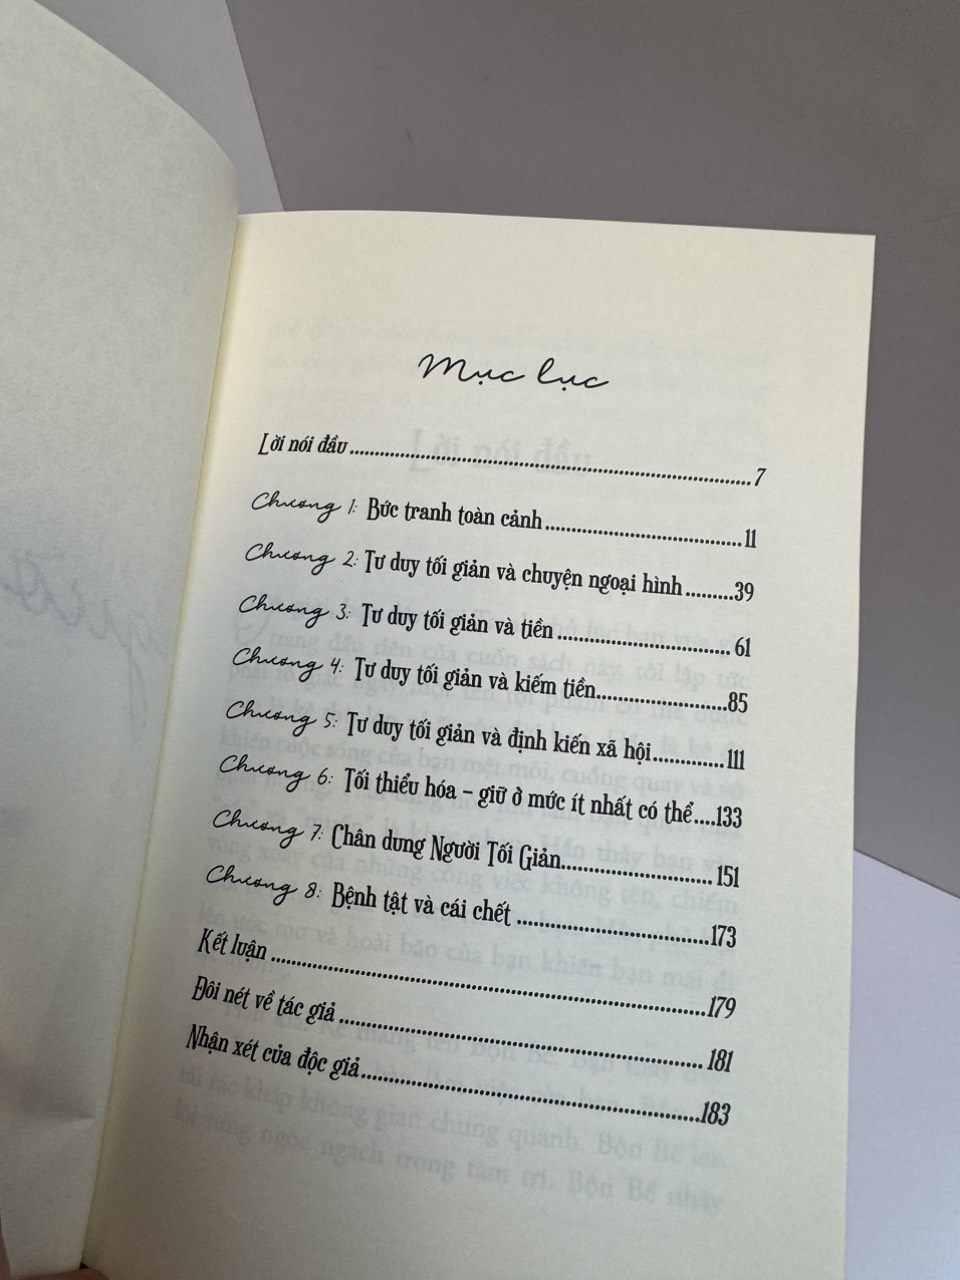 Mục lục
Lời nói đầu........................................................7
Chương 1: Bức tranh toàn cảnh...................................11
Chương 2: Tư duy tối giản và chuyện ngoại hình.........39
Chương 3: Tư duy tối giản và tiền ............................. 61
Chương 4: Tư duy tối giản và kiếm tiền......................85
Chương 5: Tư duy tối giản và định kiến xã hội............111
Chương 6: Tối thiểu hóa – giữ ở mức ít nhất có thể....133
Chương 7: Chân dung Người Tối Giản......................... 151
Chương 8: Bệnh tật và cái chết ................................173
Kết luận ..................................................................179
Đôi nét về tác giả ....................................................... 181
Nhận xét của độc giả...................................................183